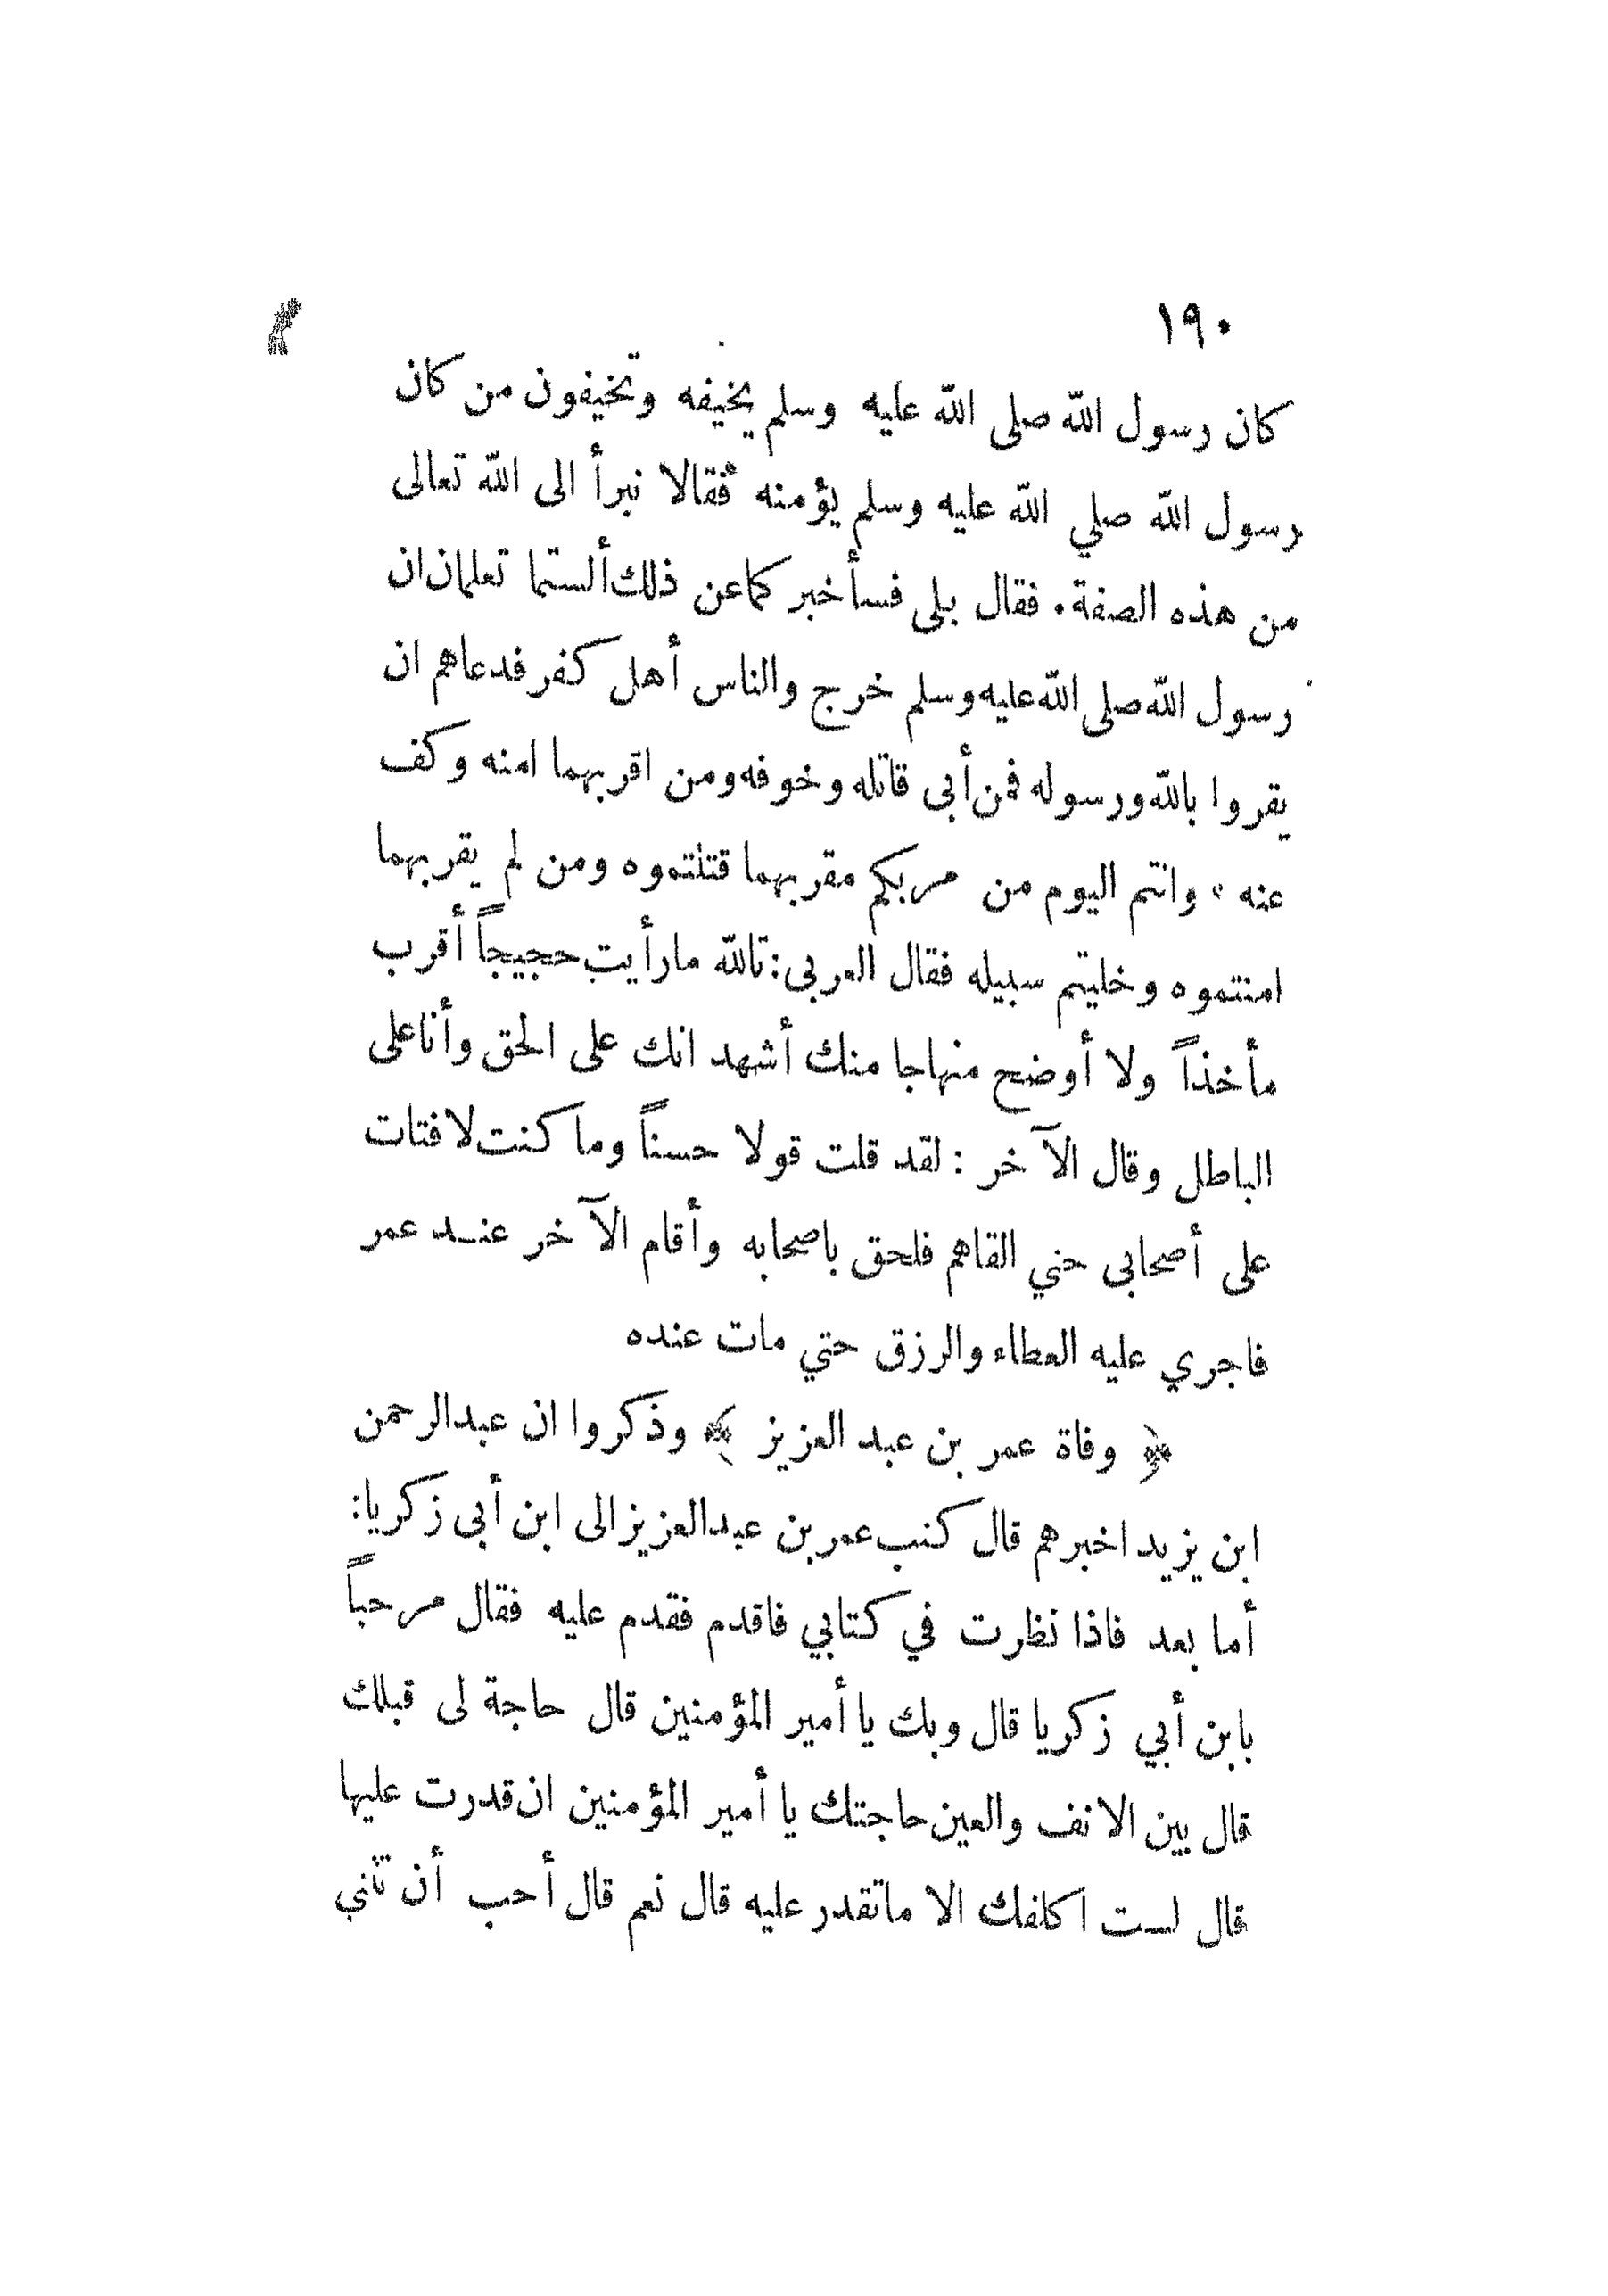 ١٩٠
كان رسول الله صلى الله عليه وسلم يخيفه وتخيفون من كان
رسول الله صلي الله عليه وسلم يؤمنه فقالا نبرأ الى الله تعالى
من هذه الصفة. فقال بلى فسأخبر كما عن ذلك ألستما تعلمان ان
رسول الله صلى الله عليه وسلم خرج والناس أهل كفر فدعاهم ان
يقروا بالله ورسوله فمن أبى قاتله وخوفه ومن اقر بهما امنه وكف
عنه ، وانتم اليوم من مر بكم مقر بهما قتلتموه ومن لم يقر بهما
امنتموه وخليتم سبيله فقال العربى: تالله مارأيت حجيجاً أقرب
مأخذاً ولا أوضح منهاجا منك أشهد انك على الحق وأنا على
الباطل وقال الآخر : لقد قلت قولا حسناً وما كنت لافتات
على أصحابى حتي القاهم فلحق باصحابه وأقام الآخر عند عمر
فاجري عليه العطاء والرزق حتي مات عنده
﴿ وفاة عمر بن عبد العزيز ﴾ وذكروا ان عبدالرحمن
ابن يزيد اخبرهم قال كتب عمر بن عبدالعزيز الى ابن أبى زكريا:
أما بعد فاذا نظرت في كتابي فاقدم فقدم عليه فقال مرحباً
بابن أبي زكريا قال وبك يا أمير المؤمنين قال حاجة لى قبلك
قال بين الانف والعين حاجتك يا أمير المؤمنين ان قدرت عليها
قال لست اكلفك الا ماتقدر عليه قال نعم قال أحب أن تثني